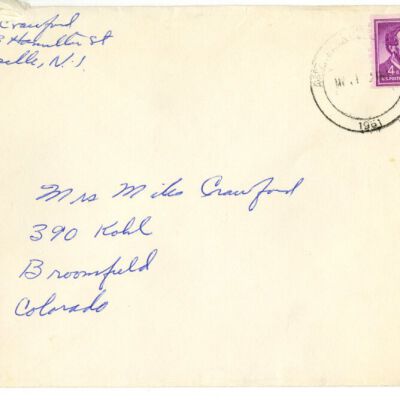 Crawford
Hamilton St
selle, N.J.
4¢
U.S. POSTA
1961
Mrs Miles Crawford
390 Kohl
Broomfield
Colorado